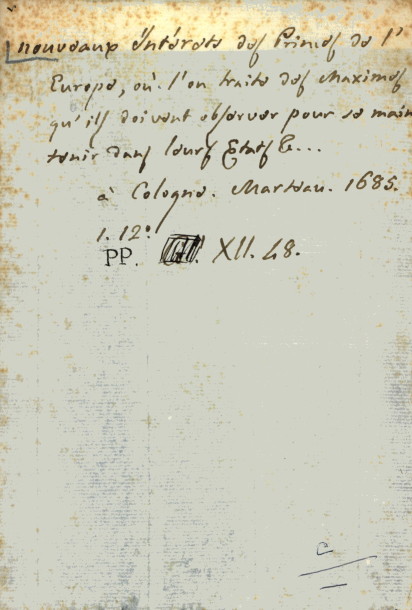 nouveaux Intérets des Princes de l'
Europe, où l'on traite des Maximes
qu'ils doivent observer pour se main
tenir dans leurs Etats &...
à Cologne. Marteau. 1685.
1. 12°
PP. XII. 48.